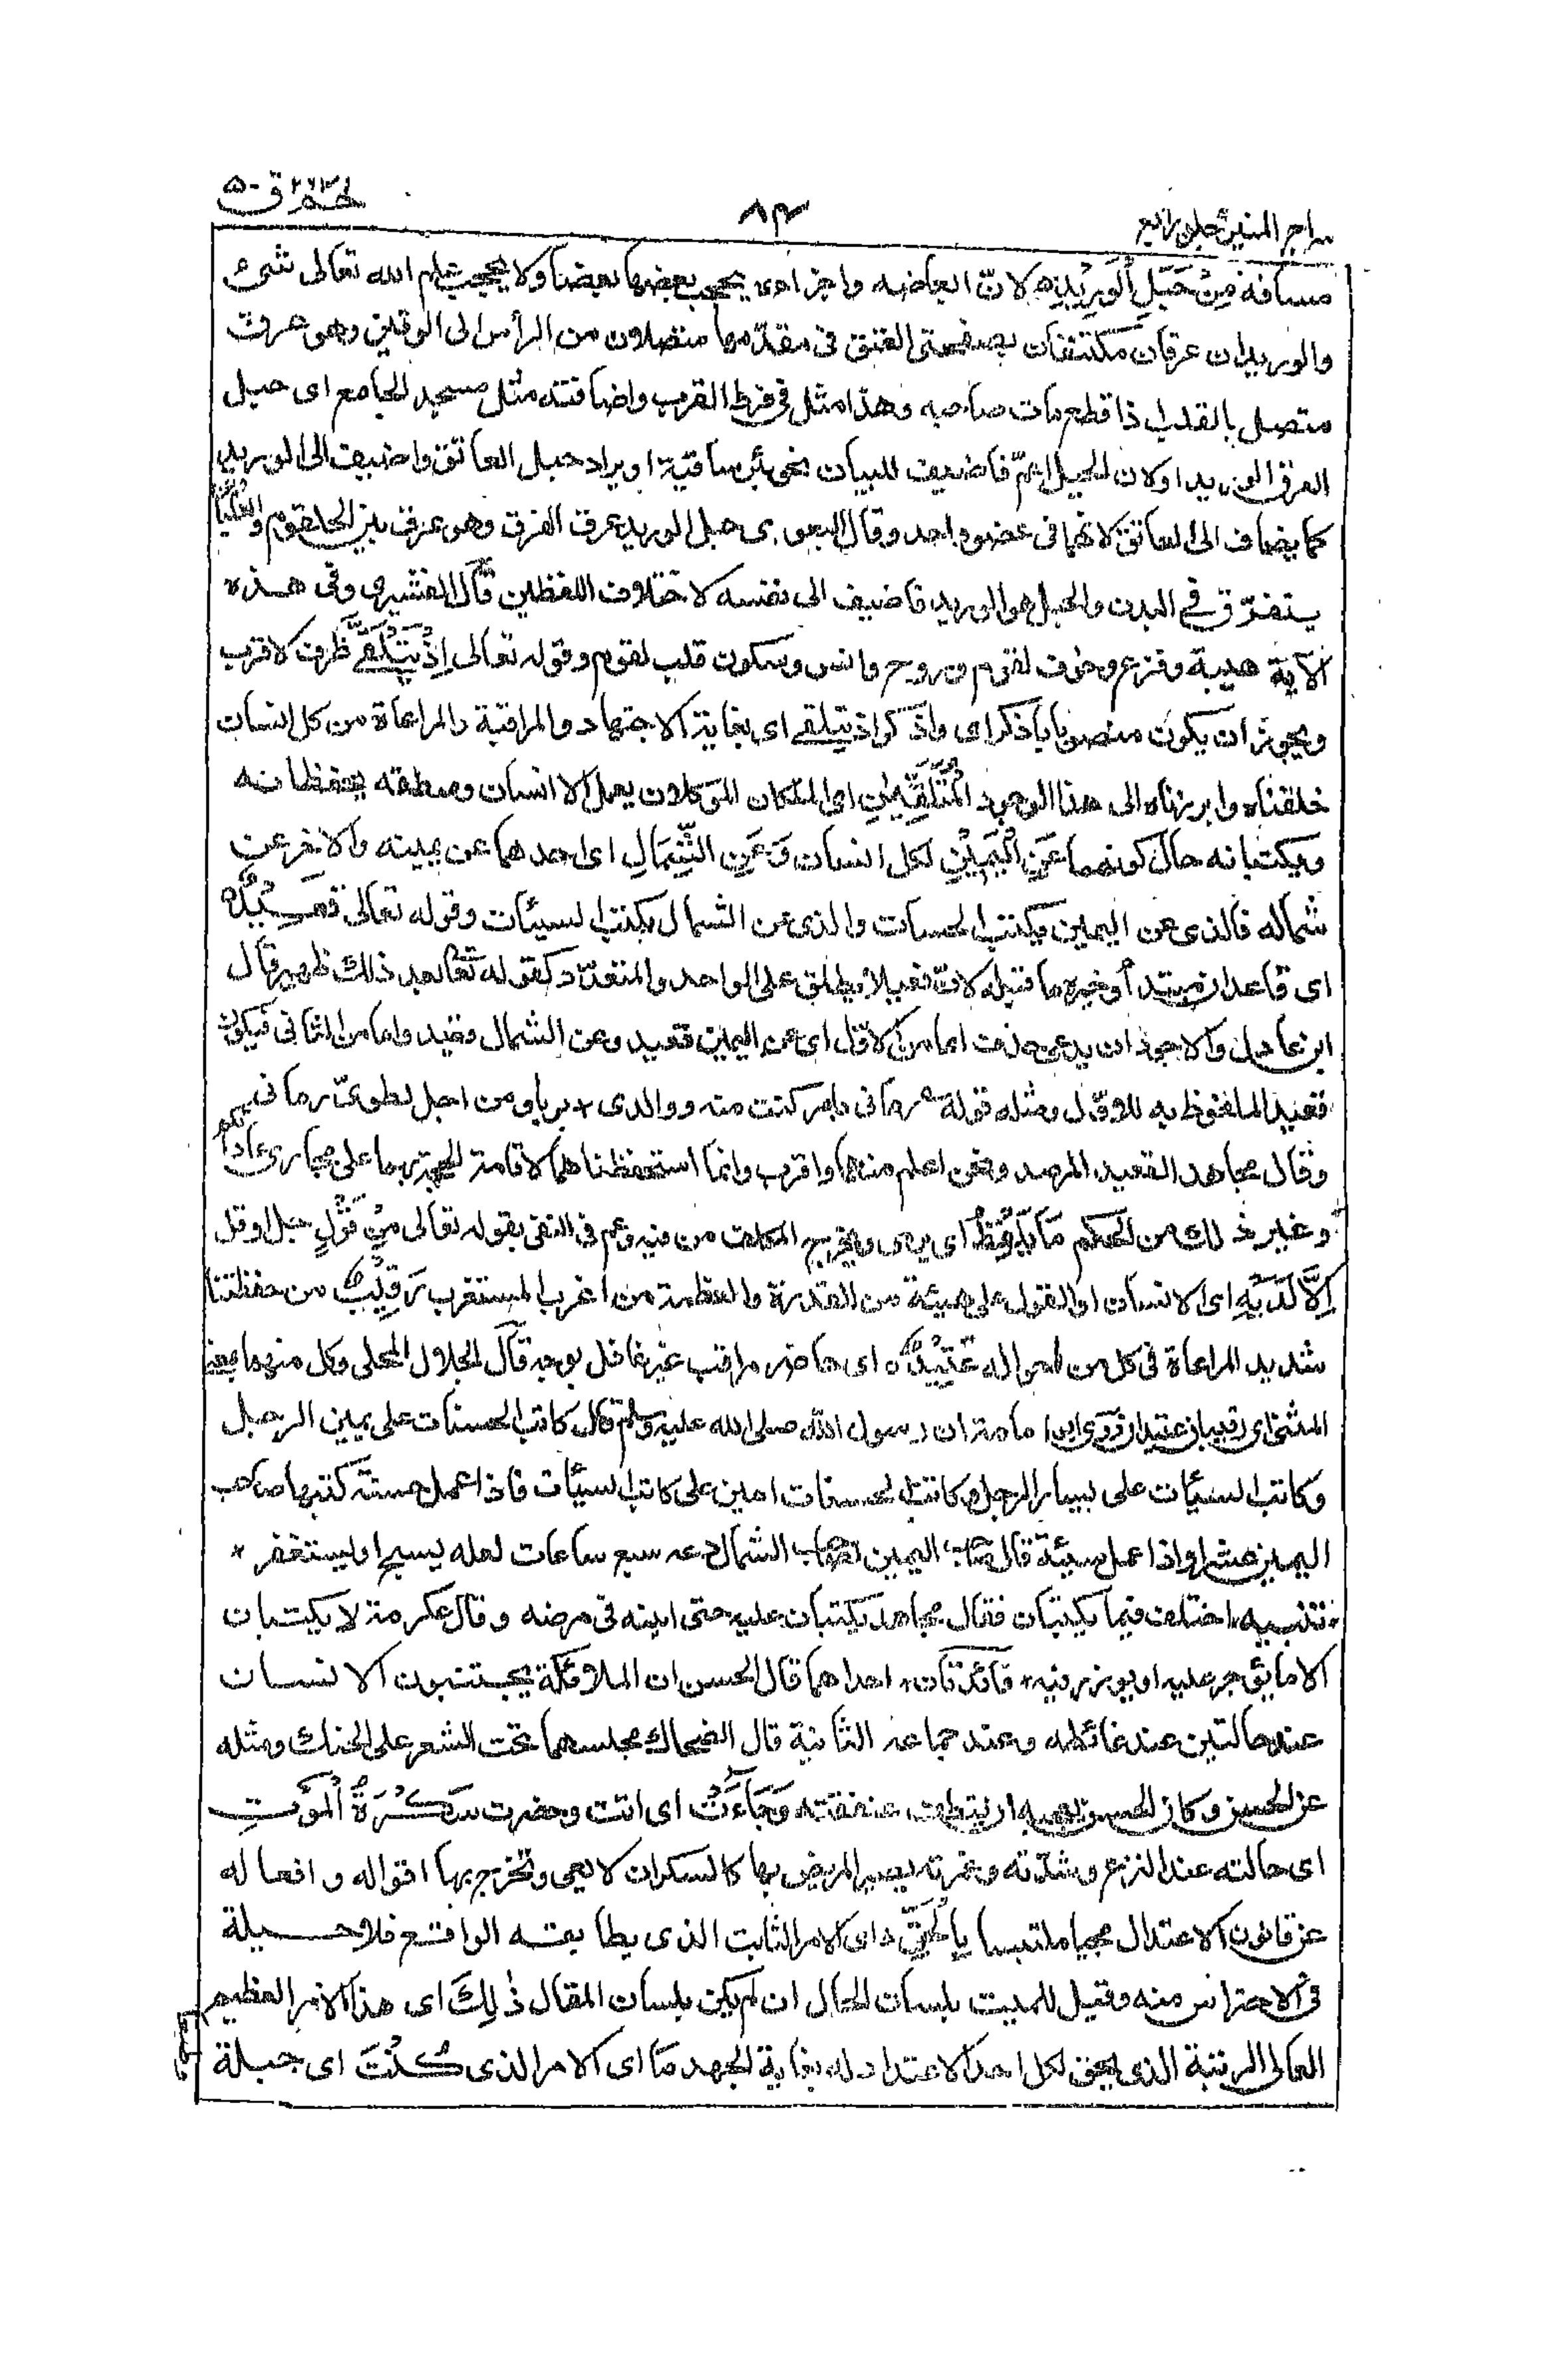 سراج المنير جلد رابع
٨٣
حٰمٓ ٢٦ ق ٥٠
مسافة مِنْ حَبْلِ الْوَرِيْدِ ه لانّ ابعاضه واجزاءه يحجب بعضها بعضا ولا يحجب علم الله تعالى شئ
والوريدان عرقان مكتنفان بصفحتى العنق فى مقدّمها متصلان من الرأس الى الوتين وهو عرق
متصل بالقلب اذا قطع مات صاحبه وهذا مثل فى فرط القرب واضافته مثل مسجد الجامع اى حبل
العرق الوريد او لان الحبل اعمّ فاضيف للبيان نحو بئر سانية او يراد حبل العاتق واضيف الى الوريد
كما يضاف الى العاتق لانهما فى عضو واحد وقال البغوى حبل الوريد عرق العنق وهو عرق بين الحلقوم والعلباوين
يتفرّق فى البدن والحبل هو الوريد فاضيف الى نفسه لاختلاف اللفظين قال القشيرى وفى هذه
الآية هيبة وفزع وخوف لقوم وروح وانس وسكون قلب لقوم وقوله تعالى اِذْ يَتَلَقَّى ظرف لاقرب
ويجوز ان يكون منصوبا باذكر اى واذكر اذ يتلقى اى بغاية الاجتهاد والمراقبة والمراعاة من كل انسان
خلقناه وابرزناه الى هذا الوجود الْمُتَلَقِّيٰنِ اى الملكان الموكلان بعمل الانسان ومنطقه يحفظانه
ويكتبانه حال كونهما عَنِ الْيَمِيْنِ لكل انسان وَعَنِ الشِّمَالِ اى احدهما عن يمينه والاخر عن
شماله فالذى عن اليمين يكتب الحسنات والذى عن الشمال يكتب السيئات وقوله تعالى قَعِيْدٌ ه
اى قاعدان مبتدأ وخبره ما قبله لانّ فعيلا يطلق على الواحد والمتعدّد كقوله تعالى بعد ذلك ظهير قال
ابن عادل والاجود ان يدعى حذف اما من الاوّل اى عن اليمين قعيد وعن الشمال قعيد واما من الثانى فيكون
قعيد الملفوظ به للاوّل ومثله قوله ؏ رمانى بامر كنت منه ووالدى * بريا ومن اجل الطوىّ رمانى
وقال مجاهد القعيد المرصد ونحن اعلم منهما واقرب وانما استحفظناهما لاقامة الحجة بهما على مجارى عاداتكم
وغير ذلك من الحكم مَا يَلْفِظُ اى يرمى ويخرج المكلف من فيه وعم فى النفى بقوله تعالى مِنْ قَوْلٍ جل او قل
اِلَّا لَدَيْهِ اى الانسان او القول على هيئة من القدرة والعظمة من اغرب المستغرب رَقِيْبٌ من حفظتنا
شديد المراعاة فى كل من احواله عَتِيْدٌ ه اى حاضر مراقب غير غافل بوجه قال الجلال المحلى وكل منهما بمعنى
المثنى اى رقيبان عتيدان روى ابو امامة ان رسول الله صلى الله عليه وسلم قال كاتب الحسنات على يمين الرجل
وكاتب السيئات على يسار الرجل وكاتب الحسنات امين على كاتب السيئات فاذا عمل حسنة كتبها صاحب
اليمين عشرا واذا عمل سيئة قال صاحب اليمين لصاحب الشمال دعه سبع ساعات لعله يسبح او يستغفر *
* تنبيه * اختلف فيما يكتبان فقال مجاهد يكتبان عليه حتى انينه فى مرضه وقال عكرمة لا يكتبان
الا ما يؤجر عليه او يوزر فيه * فائدتان * احداهما قال الحسن ان الملائكة يجتنبون الانسان
عند حالتين عند غائطه وعند جماعه الثانية قال الضحاك مجلسهما تحت الشعر على الحنك ومثله
عن الحسن وكان الحسن يعجبه ان ينظف عنفقته وَجَآءَتْ اى اتت وحضرت سَكْرَةُ الْمَوْتِ
اى حالته عند النزع وشدّته وغمرته يصير المريض بها كالسكران لا يعى وتخرج بها اقواله وافعاله
عن قانون الاعتدال مجيا ملتبسا بِالْحَقِّ ه اى الامر الثابت الذى يطابقه الواقع فلا حيلة
فى الاحتراس منه وقيل للميت بلسان الحال ان لم يكن بلسان المقال ذٰلِكَ اى هذا الامر العظيم
العالى الرتبة الذى يحق لكل احد الاعتداد له بغاية الجهد مَا اى الامر الذى كُنْتَ اى جبلة